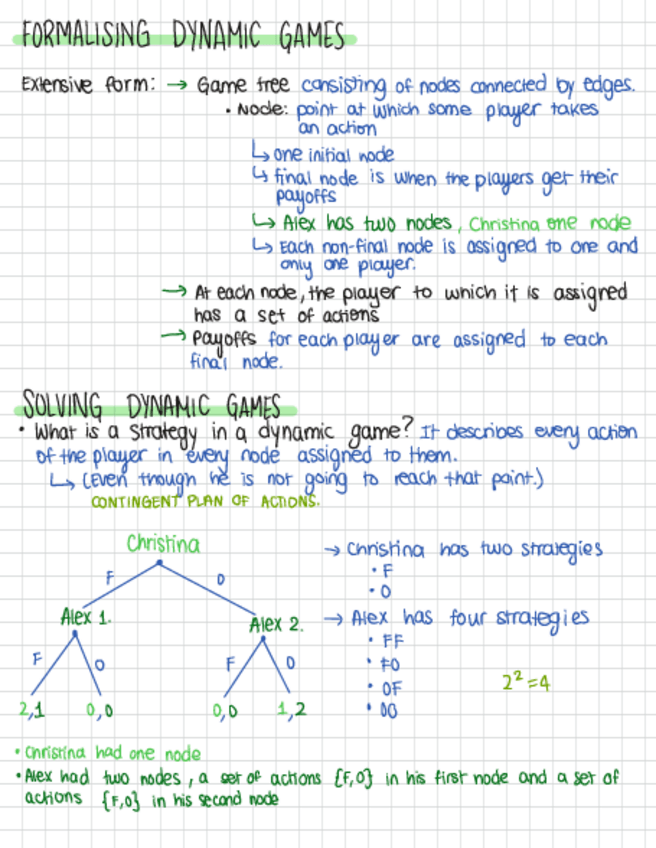 FORMALISING DYNAMIC GAMES
Extensive form: → Game tree consisting of nodes connected by edges.
• Node: point at which some player takes
an action
↳ one initial node
↳ final node is when the players get their
payoffs
↳ Alex has two nodes, Christina one node
↳ Each non-final node is assigned to one and
only one player.
→ At each node, the player to which it is assigned
has a set of actions
→ Payoffs for each player are assigned to each
final node.
SOLVING DYNAMIC GAMES
• What is a strategy in a dynamic game? It describes every action
of the player in every node assigned to them.
↳ (Even though he is not going to reach that point.)
CONTINGENT PLAN OF ACTIONS.
Christina
F O
Alex 1. Alex 2.
F O F O
2,1 0,0 0,0 1,2
→ Christina has two strategies
• F
• O
→ Alex has four strategies
• FF
• FO
• OF
• OO
2²=4
• Christina had one node
• Alex had two nodes, a set of actions {F,O} in his first node and a set of
actions {F,O} in his second node